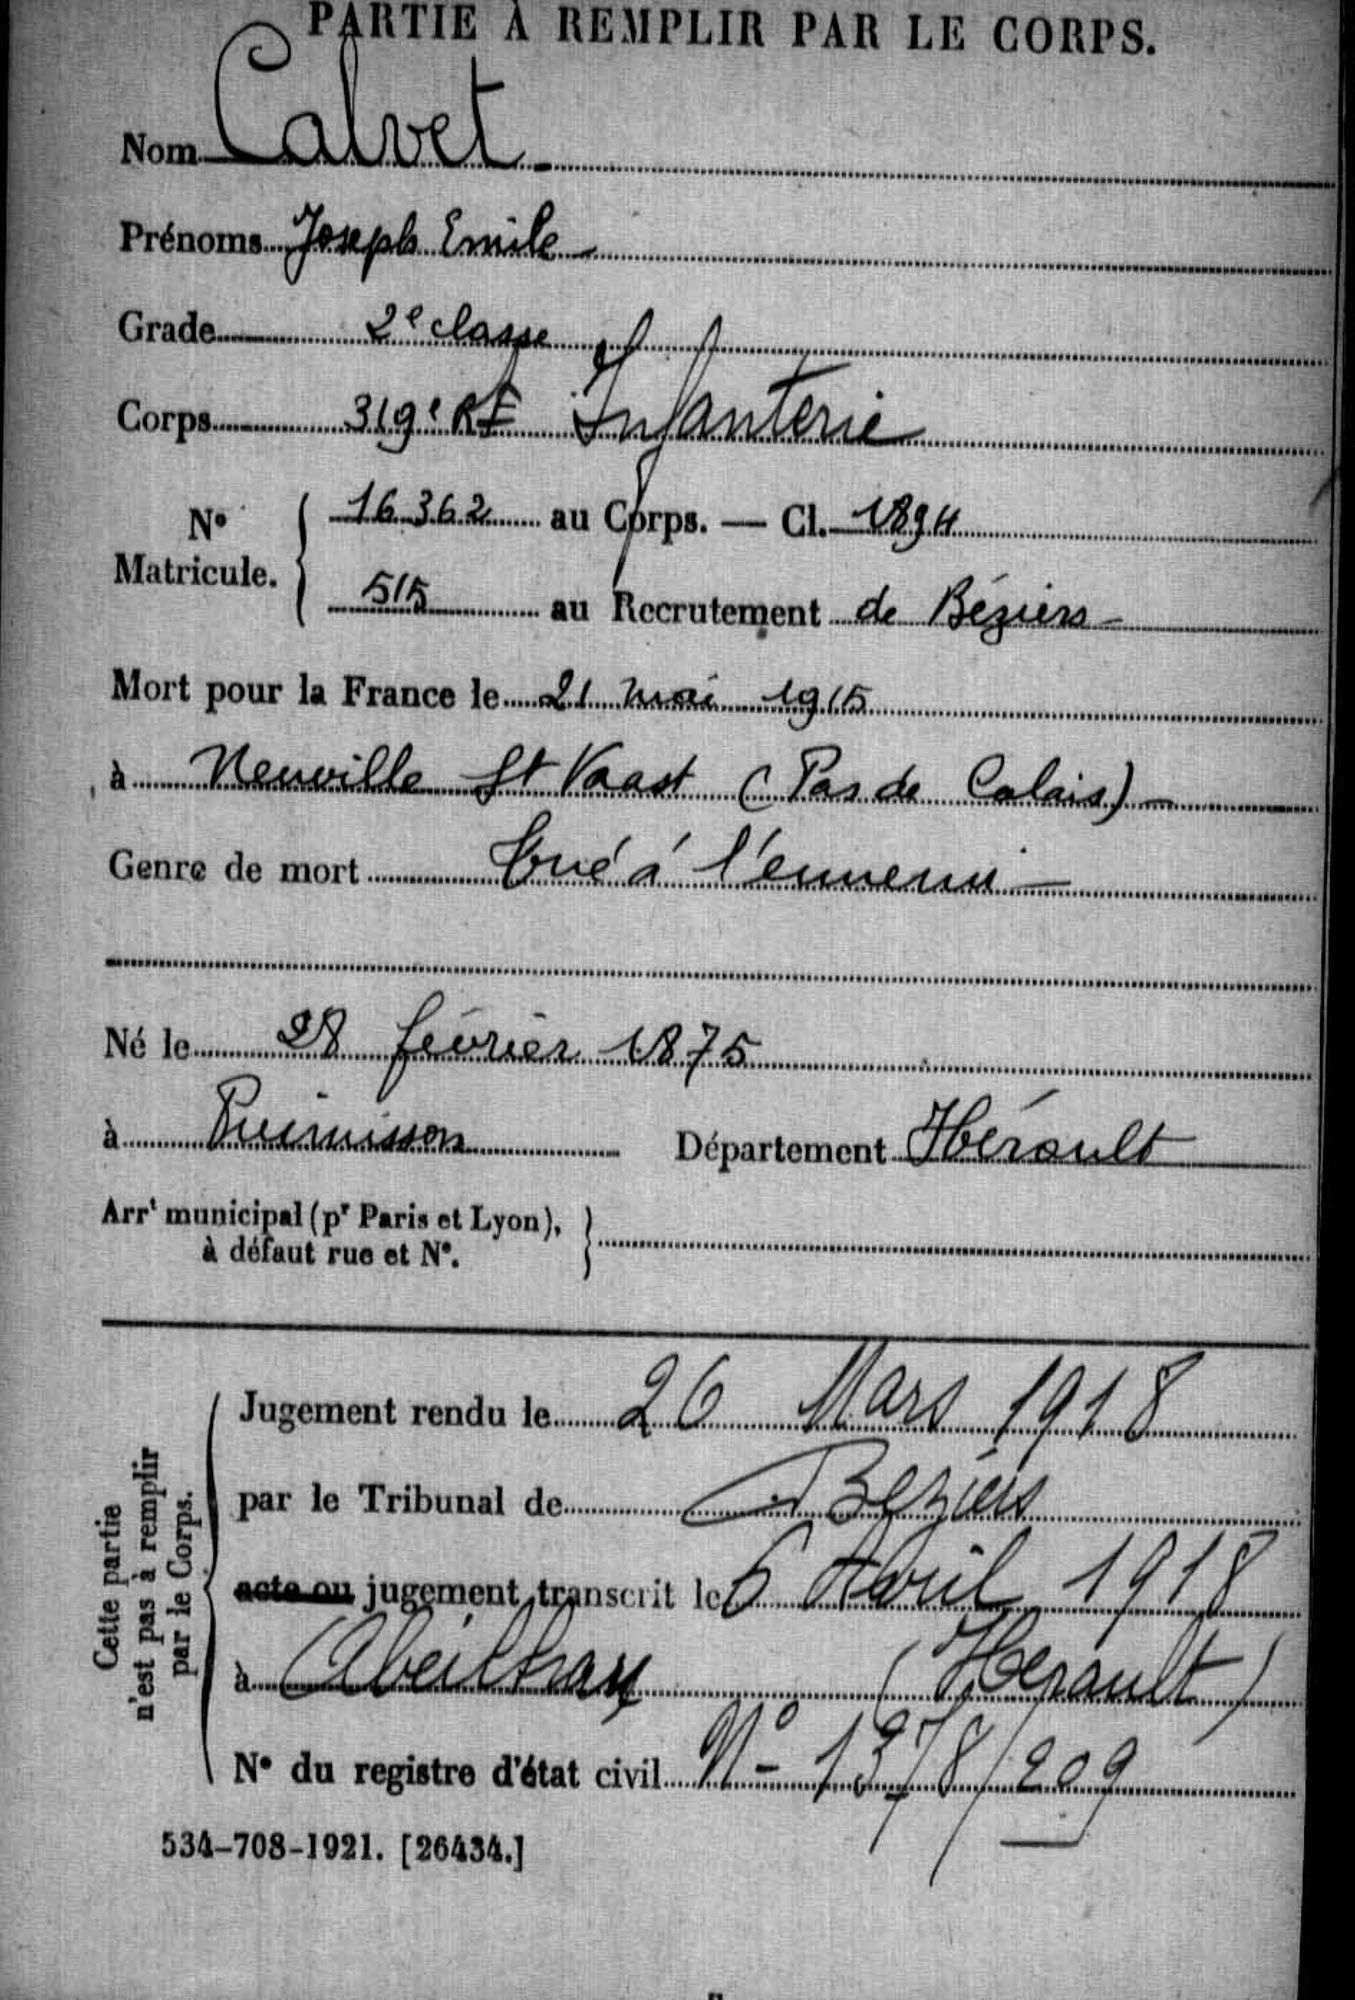 PARTIE À REMPLIR PAR LE CORPS.
Nom Calvet
Prénoms Joseph Emile
Grade 2e classe
Corps 319e RI Infanterie
N° Matricule. 16362 au Corps. — Cl. 1894
515 au Recrutement de Béziers
Mort pour la France le 21 mai 1915
à Neuville St Vaast (Pas de Calais)
Genre de mort Tué à l'ennemi
Né le 28 février 1875
à Puimisson Département Hérault
Arrt municipal (pr Paris et Lyon),
à défaut rue et N°.
Cette partie
n'est pas à remplir
par le Corps.
Jugement rendu le 26 Mars 1918
par le Tribunal de Béziers
acte ou jugement transcrit le 6 Avril 1918
à Abeilhan (Hérault)
N° du registre d'état civil N° 1378/209
534-708-1921. [26434.]